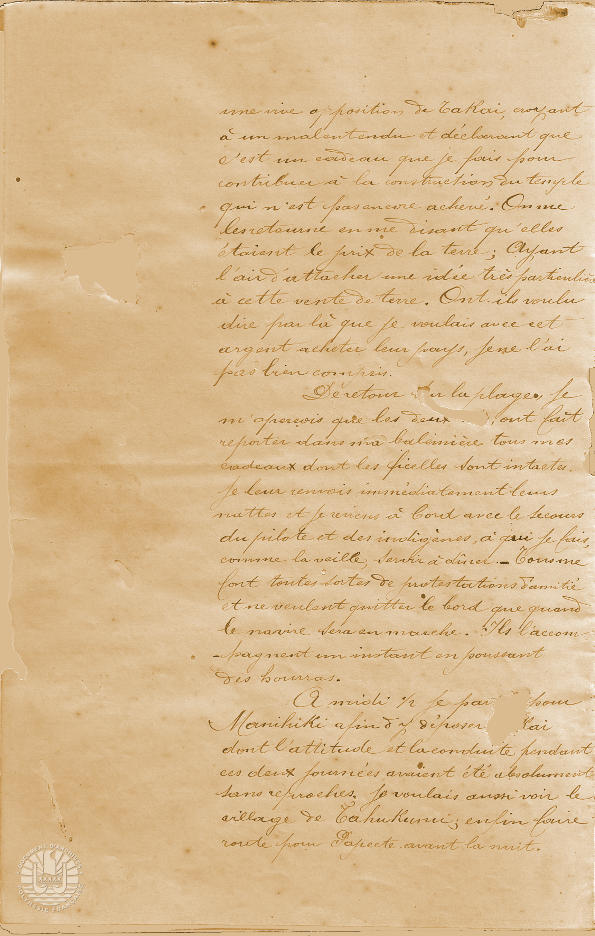 une vive opposition de Takai, croyant
à un malentendu et déclarant que
c'est un cadeau que je fais pour
contribuer à la construction du temple
qui n'est pas encore achevé. On me
les retourne en me disant qu'elles
étaient le prix de la terre; Ayant
l'air d'attacher une idée très particulière
à cette vente de terre. Ont-ils voulu
dire par là que je voulais avec cet
argent acheter leur pays, je ne l'ai
pas bien compris.
De retour sur la plage, je
m'aperçois que les deux ont fait
reporter dans ma baleinière tous mes
cadeaux dont les ficelles sont intactes.
Je leur renvois immédiatement leurs
nattes et je reviens à bord avec le secours
du pilote et des indigènes, à qui je fais,
comme la veille, servir à dîner - Tous me
font toutes sortes de protestations d'amitié
et ne veulent quitter le bord que quand
le navire sera en marche. Ils l'accom-
-pagnent un instant en poussant
des hourras.
A midi ½ je par pour
Manihiki afin d'y déposer kai
dont l'attitude et la conduite pendant
ces deux journées avaient été absolument
sans reproches. Je voulais aussi voir le
village de Tahukunu; enfin faire
route pour Papeete avant la nuit.